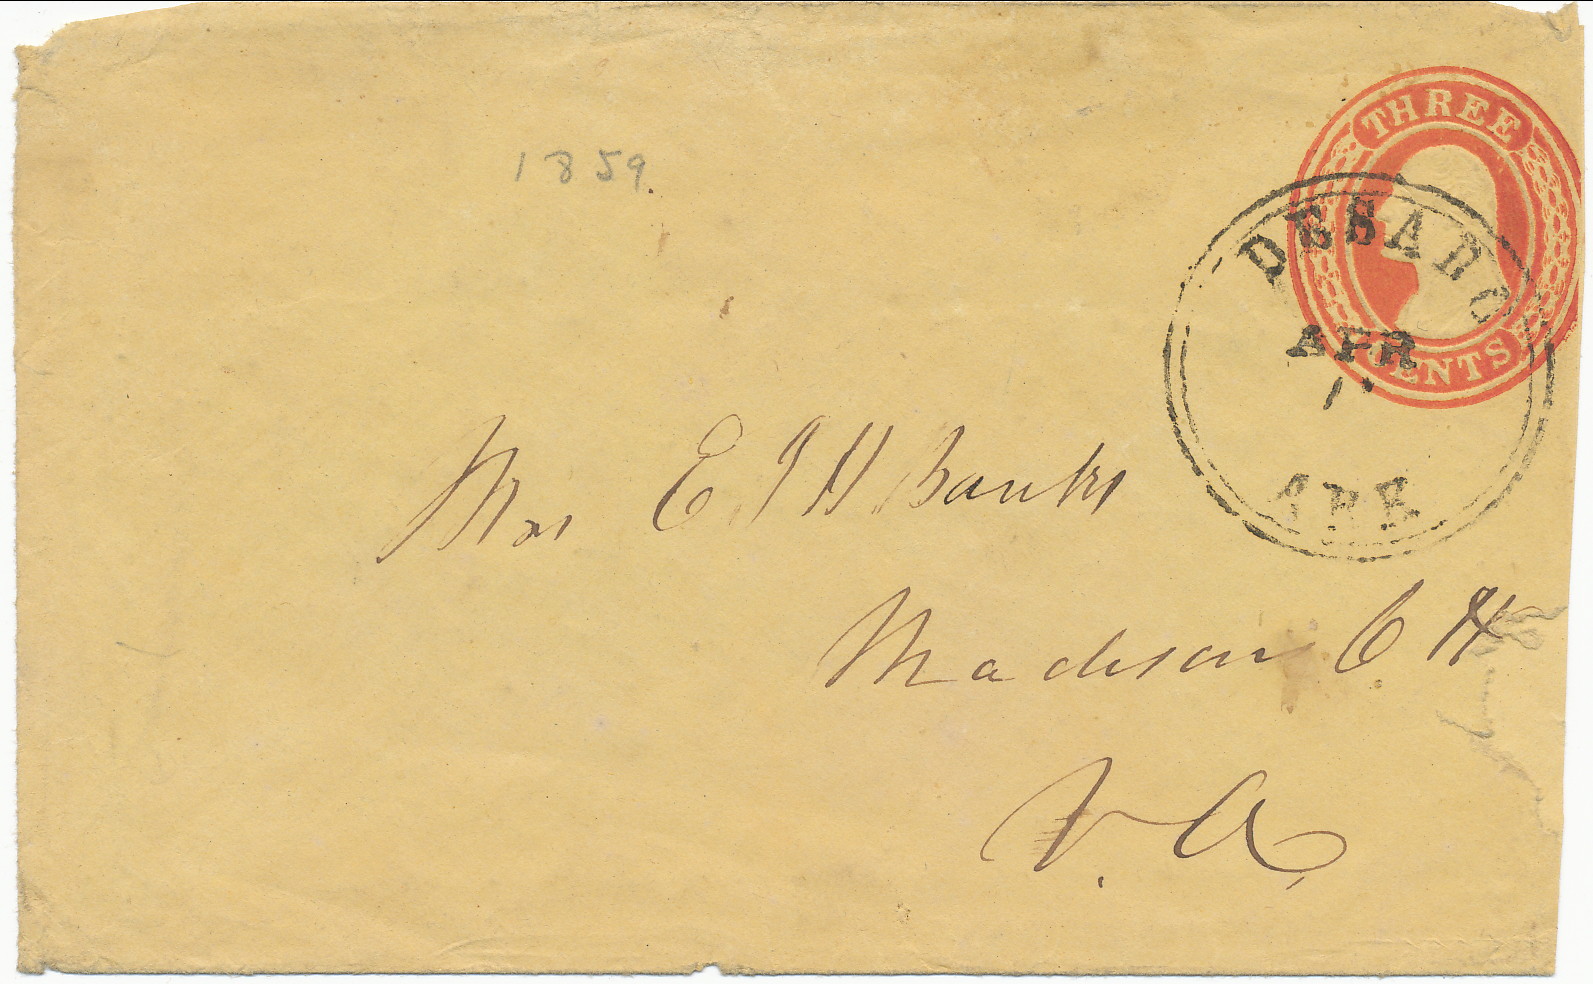 1859.
THREE
CENTS
DES ARC
APR
1
ARK
Mrs E J H Banks
Madison C H
V. A.